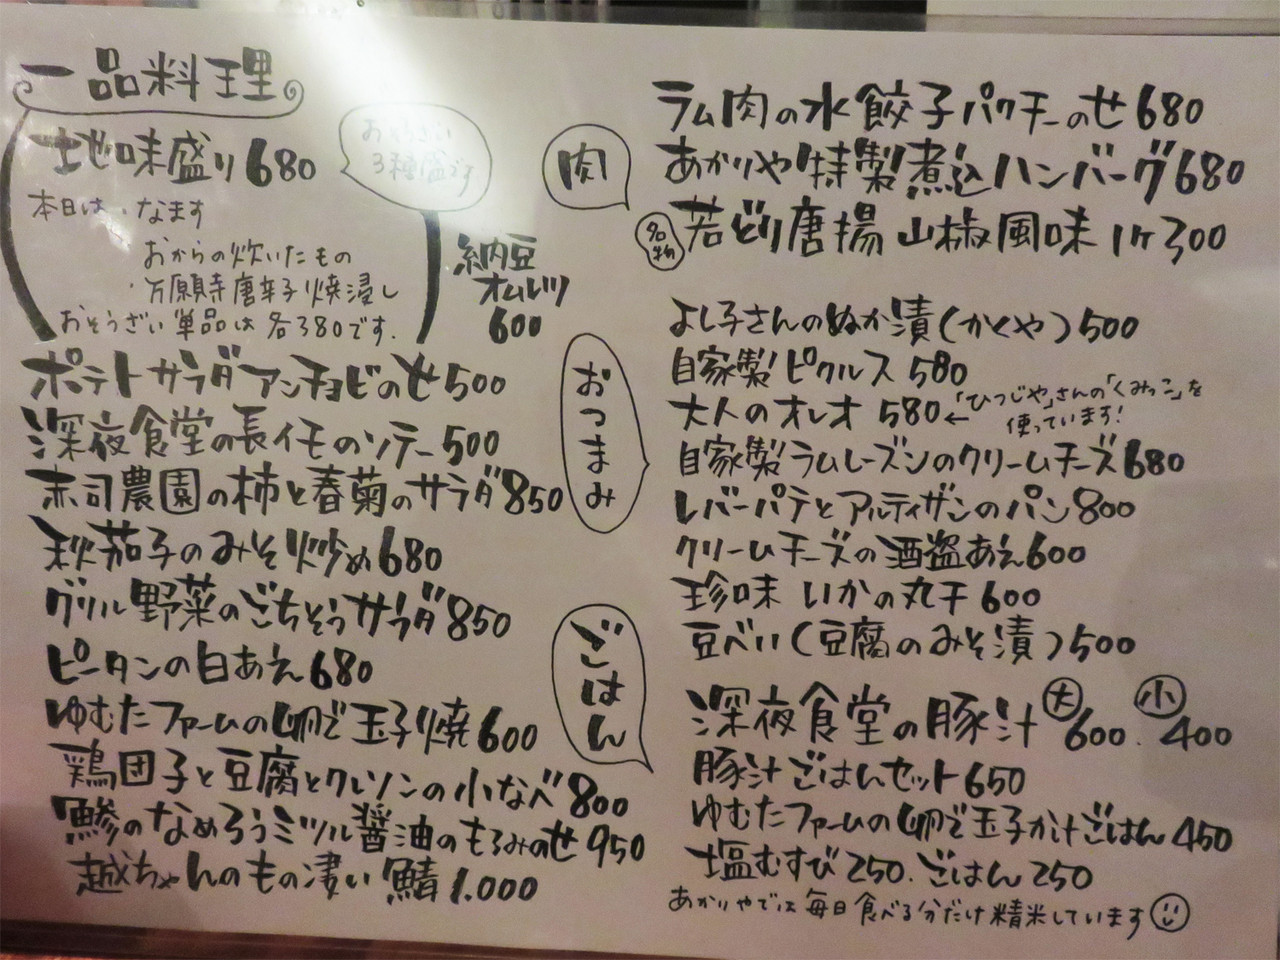 一品料理
地味盛り 680
おそうざい
3種盛です
本日は、なます
おからの炊いたもの
万願寺唐辛子焼浸し
おそうざい単品は各380です.
納豆
オムレツ
600
ポテトサラダアンチョビのせ 500
深夜食堂の長イモのソテー 500
赤司農園の柿と春菊のサラダ 850
秋茄子のみそ炒め 680
グリル野菜のごちそうサラダ 850
ピータンの白あえ 680
ゆむたファームの卵で玉子焼 600
鶏団子と豆腐とクレソンの小なべ 800
鯵のなめろうミツル醤油のもろみのせ 950
越ちゃんのもの凄い鯖 1.000
肉
ラム肉の水餃子パクチーのせ 680
あかりや特製煮込ハンバーグ 680
名物 若どり唐揚 山椒風味 1ヶ300
おつまみ
よし子さんのぬか漬(かくや) 500
自家製ピクルス 580
大人のオレオ 580 ←「ひつじや」さんの「くみっこ」を
使っています!
自家製ラムレーズンのクリームチーズ 680
レバーパテとアルティザンのパン 800
クリームチーズの酒盗あえ 600
珍味 いかの丸干 600
豆べい(豆腐のみそ漬) 500
ごはん
深夜食堂の豚汁 大 600. 小 400
豚汁ごはんセット 650
ゆむたファームの卵で玉子かけごはん 450
塩むすび 250. ごはん 250
あかりやでは毎日食べる分だけ精米しています